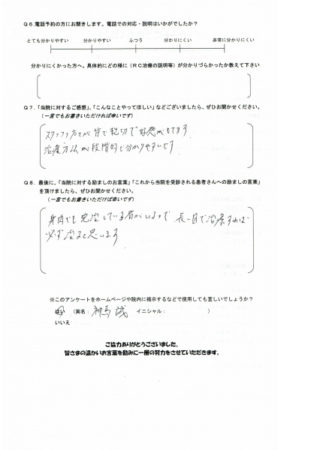 Q6.電話予約の方にお聞きします。電話での対応・説明はいかがでしたか？
とても分かりやすい　分かりやすい　ふつう　わかりにくい　非常に分かりにくい
分かりにくかった方へ、具体的にどの様に（ＲＣ治療の説明等）が分かりづらかったか教えて下さい
Q7.「当院に対するご感想」「こんなことやってほしい」などございましたら、ぜひお聞かせください。
（一言でもお書きいただければ幸いです）
スタッフの方々が皆で親切で好感がもてます。
治療方法が段階的で分かりやすいです
Q8.最後に、「当院に対する励ましのお言葉」「これから当院を受診される患者さんへの励ましの言葉」
を頂けましたら、ぜひお聞かせください。
（一言でもお書きいただければ幸いです）
身内でも完治している者がいるので
必ず治ると思います
※このアンケートをホームページや院内に掲示するなどで使用しても宜しいでしょうか？
（実名：　イニシャル：　）
いいえ
ご協力ありがとうございました。
皆さまの温かいお言葉を励みに一層の努力をさせていただきます。